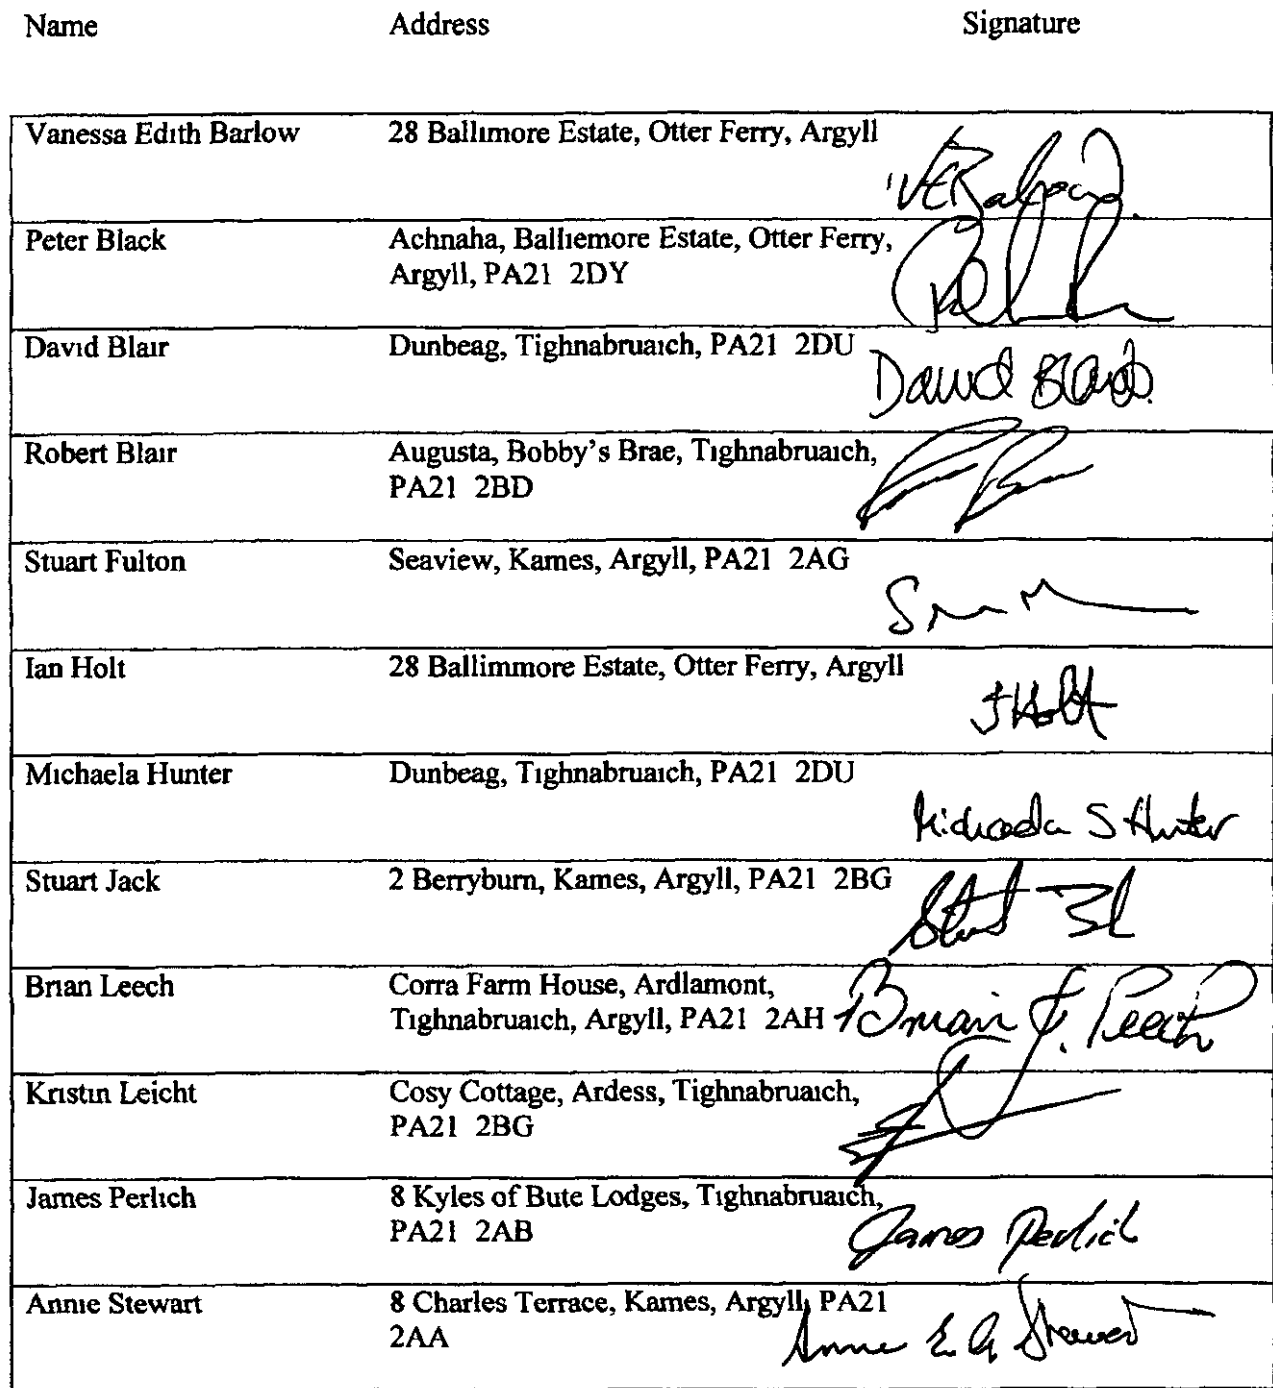 Name Address Signature
Vanessa Edith Barlow 28 Ballimore Estate, Otter Ferry, Argyll
Peter Black Achnaha, Balliemore Estate, Otter Ferry,
Argyll, PA21 2DY
David Blair Dunbeag, Tighnabruaich, PA21 2DU
David Blair
Robert Blair Augusta, Bobby's Brae, Tighnabruaich,
PA21 2BD
Stuart Fulton Seaview, Kames, Argyll, PA21 2AG
Ian Holt 28 Ballimmore Estate, Otter Ferry, Argyll
I Holt
Michaela Hunter Dunbeag, Tighnabruaich, PA21 2DU
Michaela S Hunter
Stuart Jack 2 Berryburn, Kames, Argyll, PA21 2BG
Brian Leech Corra Farm House, Ardlamont,
Tighnabruaich, Argyll, PA21 2AH Brian J. Leech
Kristin Leicht Cosy Cottage, Ardess, Tighnabruaich,
PA21 2BG
James Perlich 8 Kyles of Bute Lodges, Tighnabruaich,
PA21 2AB James Perlich
Annie Stewart 8 Charles Terrace, Kames, Argyll, PA21
2AA Annie E. A Stewart